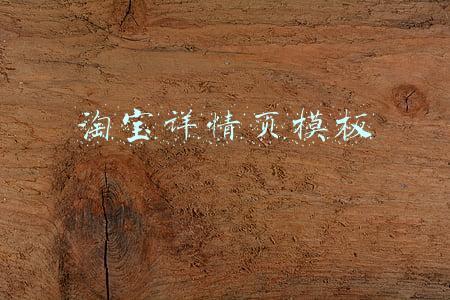 淘宝详情页模板